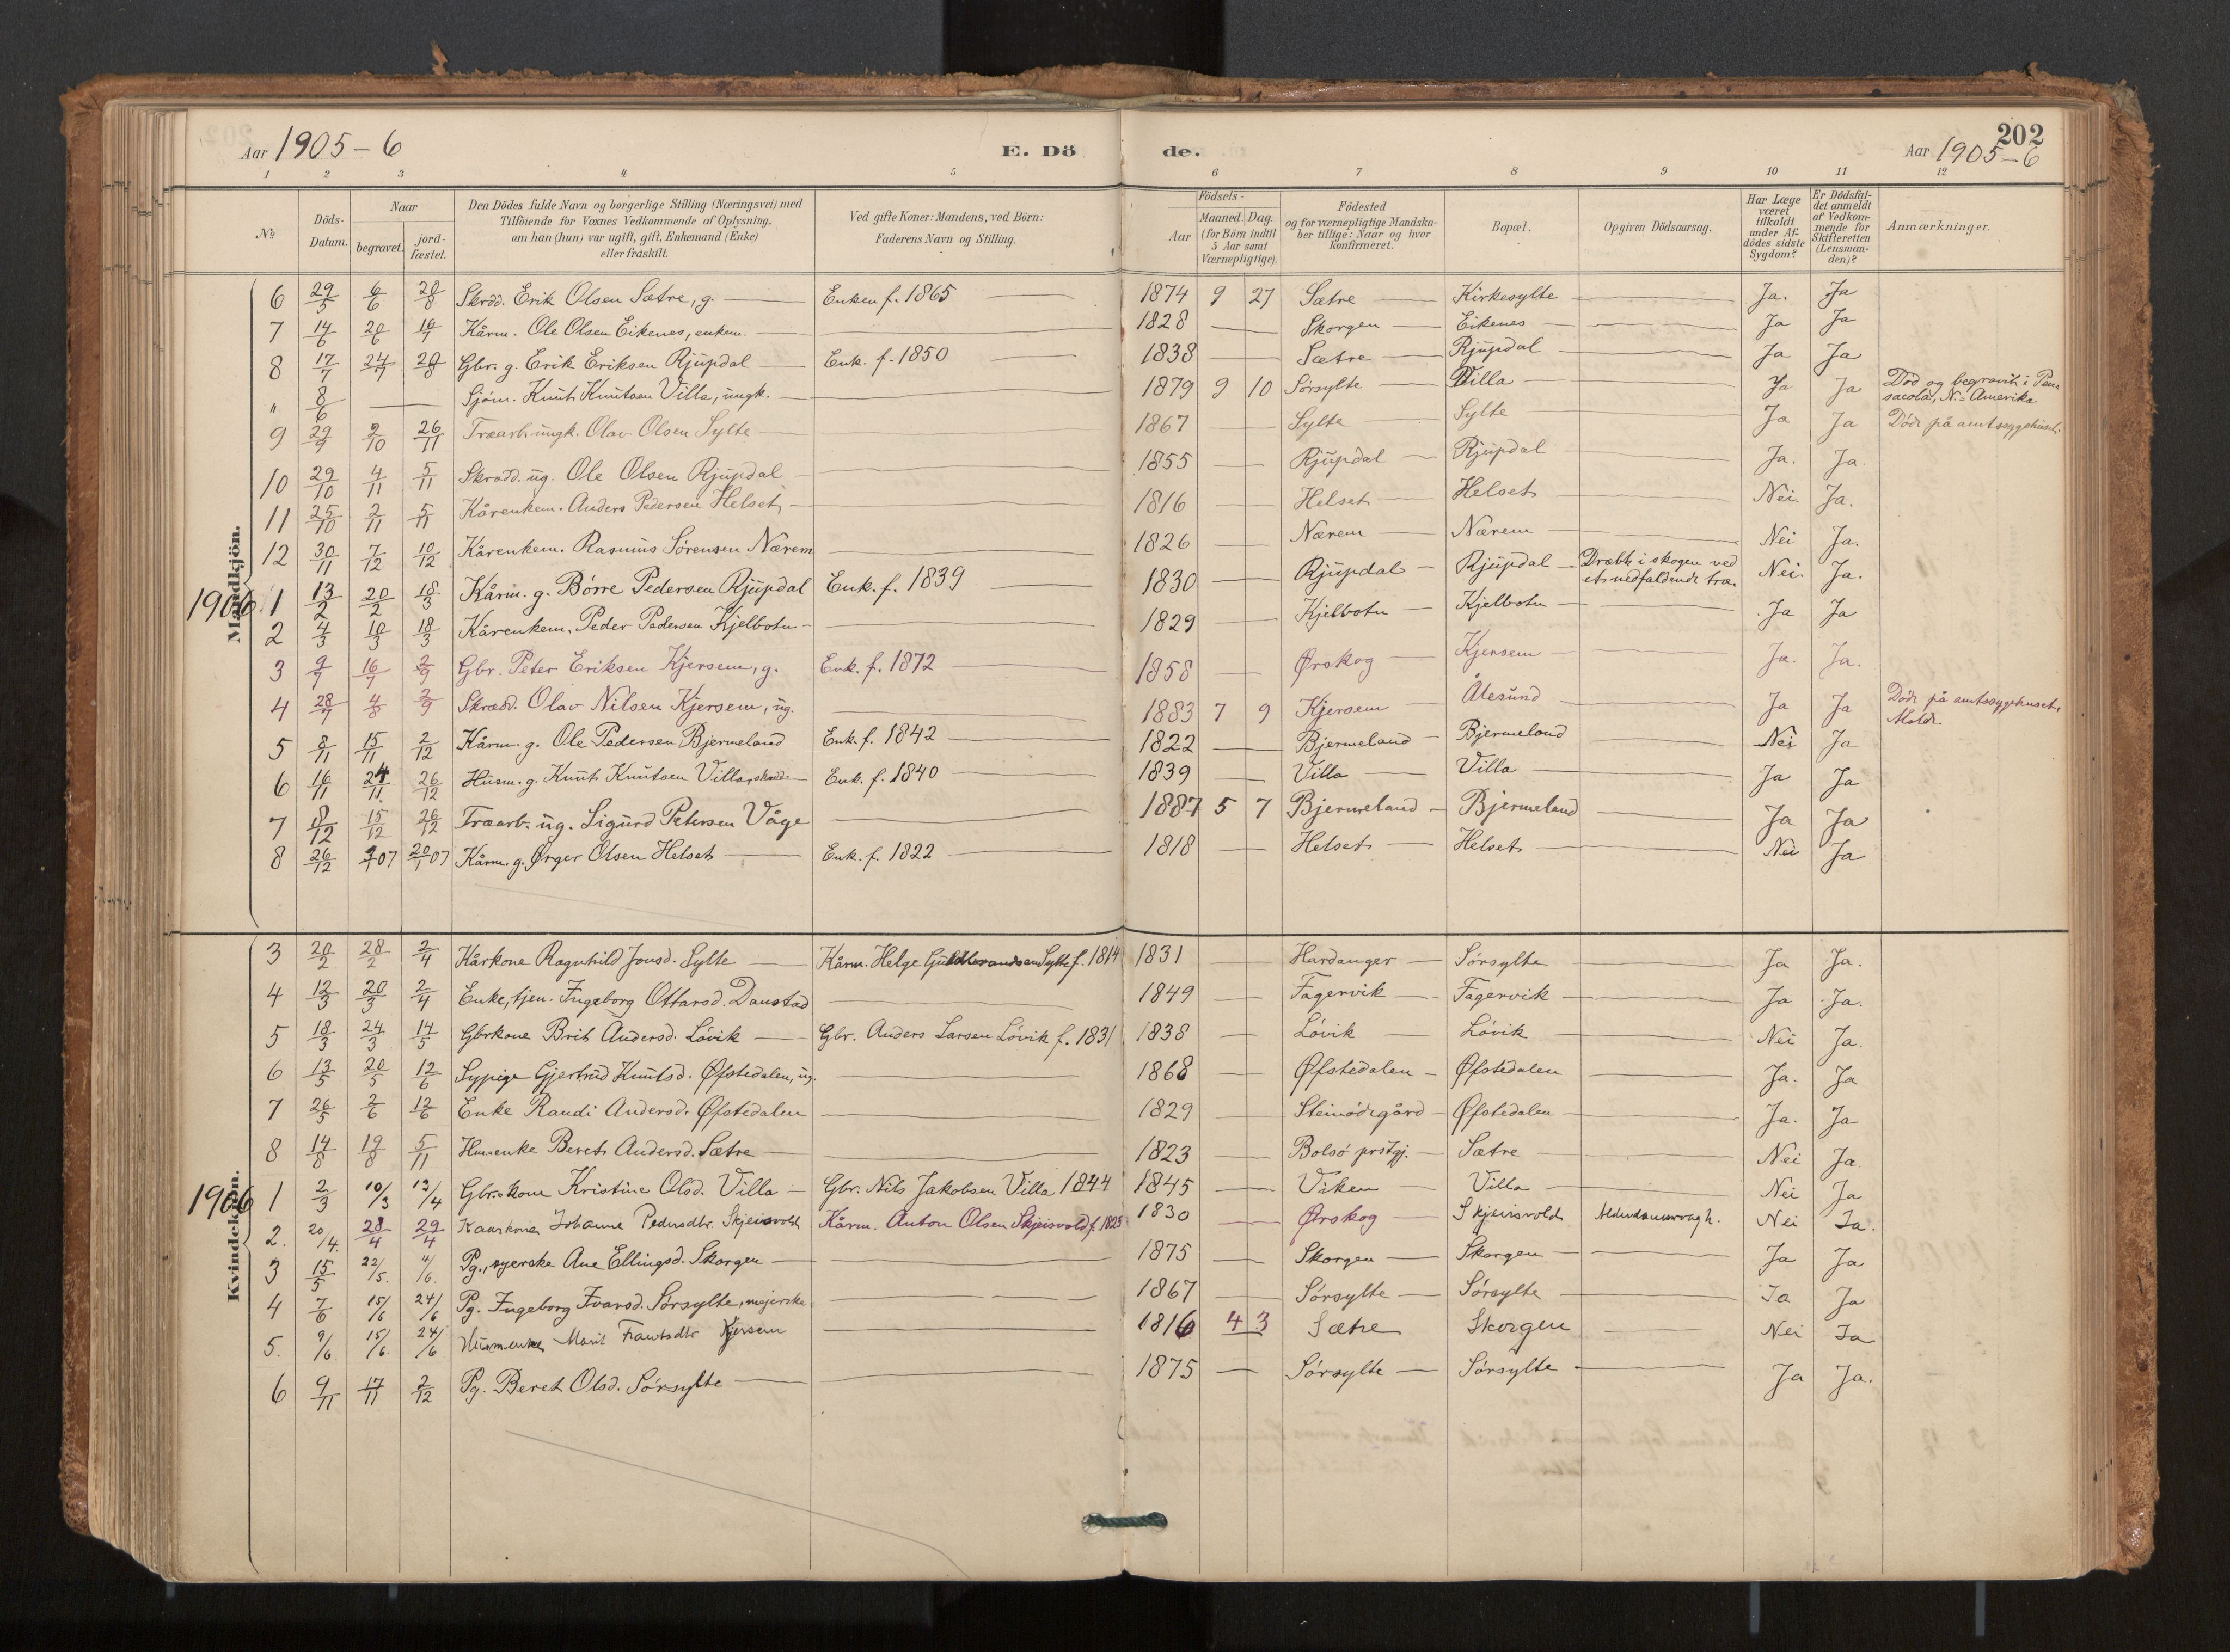 Aar 1905-6
E. Dö
de.
202
Aar 1905-6
1 2 3 4 5 6 7 8 9 10 11 12
№
Döds-Datum.
Naar
begravet.
jord-fæstet.
Den Dödes fulde Navn og borgerlige Stilling (Næringsvei) med
Tilföiende for Voxnes Vedkommende af Oplysning,
om han (hun) var ugift, gift, Enkemand (Enke)
eller fraskilt.
Ved gifte Koner: Mandens, ved Börn:
Faderens Navn og Stilling.
Födsels-
Aar
Maaned. Dag.
(for Börn indtil
5 Aar samt
Værnepligtige).
Födested
og for værnepligtige Mandska-
ber tillige: Naar og hvor
konfirmeret.
Bopæl.
Opgiven Dödsaarsag.
Har Læge
været
tilkaldt
under Af-
dödes sidste
Sygdom?
Er Dödsfal-
det anmeldt
af Vedkom-
mende for
Skifteretten
(Lensman-
den)?
Anmærkninger.
Mandkjön.
6 29/5 6/6 20/8 Skrdd. Erik Olsen Sætre, g. Enken f. 1865 1874 9 27 Sætre Kirkesylte Ja. Ja
7 14/6 20/6 16/7 Kårm. Ole Olsen Eikenes, enkem. 1828 Skorgen Eikenes Ja Ja
8 17/7 24/7 20/8 Gbr. g. Erik Eriksen Rjupdal Enk. f. 1850 1838 Sætre Rjupdal Ja Ja
" 8/6 Sjöm. Knut Knutsen Villa, ungk. 1879 9 10 Sörsylte Villa Ja Ja Död og begravet i Pen-
sacola, N.-Amerika
9 29/9 2/10 26/11 Træarb. ungk. Olav Olsen Sylte 1867 Sylte Sylte Ja Ja Döde på amtssygehuset.
10 29/10 4/11 5/11 Skrædd. ug. Ole Olsen Rjupdal 1855 Rjupdal Rjupdal Ja. Ja
11 25/10 2/11 5/11 Kårenkem. Anders Pedersen Helset 1816 Helset Helset Nei Ja.
12 30/11 7/12 10/12 Kårenkem. Rasmus Sörensen Nærem 1826 Nærem Nærem Nei Ja.
1906 1 13/2 20/2 18/3 Kårm. g. Börre Pedersen Rjupdal Enk. f. 1839 1830 Rjupdal Rjupdal Dræbt i skogen ved
et nedfaldende træ. Nei. Ja.
2 4/3 10/3 18/3 Kårenkem. Peder Pedersen Kjelbotn 1829 Kjelbotn Kjelbotn Ja Ja
3 9/7 16/7 2/9 Gbr. Peter Eriksen Kjersem, g. Enk. f. 1872 1858 Ørskog Kjersem Ja. Ja.
4 28/7 4/8 2/9 Skrædd. Olav Nilsen Kjersem, ug. 1883 7 9 Kjersem Ålesund Ja Ja Döde på amtssygehuset,
Molde.
5 8/11 15/11 2/12 Kårm. g. Ole Pedersen Bjermeland Enk. f. 1842 1822 Bjermeland Bjermeland Nei Ja
6 16/11 24/11 26/12 Husm. g. Knut Knutsen Villa, Enk. f. 1840 1839 Villa Villa Ja Ja
7 8/12 15/12 26/12 Træarb. ug. Sigurd Petersen Våge 1887 5 7 Bjermeland Bjermeland Ja Ja
8 26/12 07 20/1 07 Kårm. g. Ørger Olsen Helset Enk. f. 1822 1818 Helset Helset Nei Ja
Kvindekjön.
3 20/2 28/2 2/4 Kårkone Ragnhild Jonsd. Sylte Kårm. Helge Guldbrandsen Sylte f. 1814 1831 Hardanger Sörsylte Ja Ja.
4 12/3 20/3 2/4 Enke, tjen. Ingeborg Ottarsd. Daustad 1849 Fagervik Fagervik Ja Ja.
5 18/3 24/3 14/5 Gbrkone Brit Andersd. Lövik Gbr. Anders Larsen Lövik f. 1831 1838 Lövik Lövik Nei Ja.
6 13/5 20/5 12/6 Sypige Gjertrud Knutsd. Øfstedalen, ug. 1868 Øfstedalen Øfstedalen Ja. Ja
7 26/5 2/6 12/6 Enke Randi Andersd. Øfstedalen 1829 Steinödegård Øfstedalen Ja. Ja
8 14/8 19/8 5/11 Husenke Beret Andersd. Sætre 1823 Bolsö prstgj. Sætre Nei Ja
1906 1 2/3 10/3 12/4 Gbr.kone Kristine Olsd. Villa Gbr. Nils Jakobsen Villa 1844 1845 Viken Villa Nei Ja
2. 20/4. 28/4 29/4 Kaarkone Johanne Pedersdtr. Skjeisvold Kårm. Anton Olsen Skjeisvold f. 1825 1830 Ørskog Skjeisvold Alderdomssvagh. Nei Ja.
3 15/5 22/5. 4/6. Pg., syerske Ane Ellingsd. Skorgen 1875 Skorgen Skorgen Ja Ja
4 7/6 15/6 24/6 Pg. Ingeborg Ivarsd. Sörsylte, mejerske 1867 Sörsylte Sörsylte Ja Ja
5. 9/6 15/6 24/6 Husmenke Marit Frantsdtr Kjersem 1816 4 3 Sætre Skorgen Nei Ja
6 9/11 17/11 2/12 Pg. Beret Olsd. Sörsylte 1875 Sörsylte Sörsylte Ja Ja.